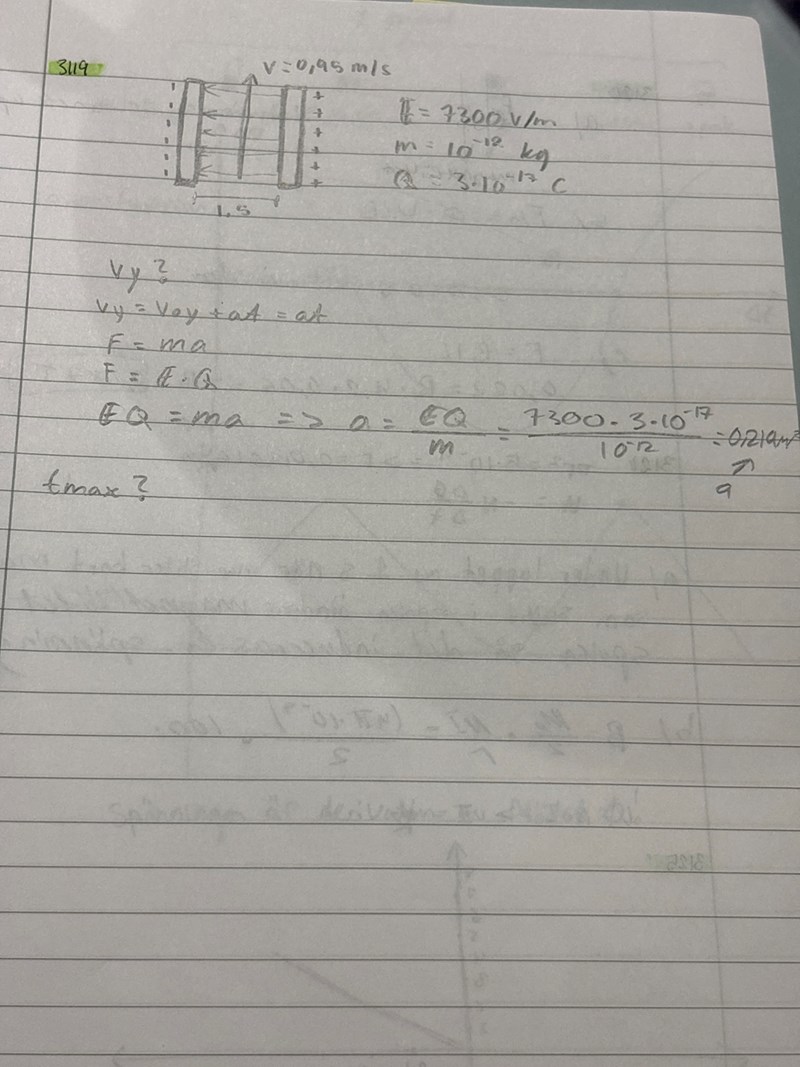 3119
V = 0,95 m/s
E = 7300 V/m
m = 10⁻¹² kg
Q = 3·10⁻¹⁷ C
1,5
Vy?
Vy = Voy + at = at
F = ma
F = E·Q
EQ = ma => a = EQ/m = 7300 · 3·10⁻¹⁷/10⁻¹² = 0,219 m/s²
a
tmax?